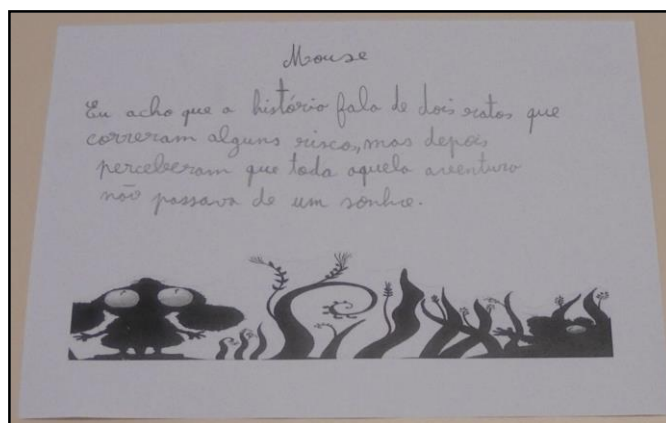 Mouse
Eu acho que a história fala de dois ratos que
correram alguns riscos, mas depois
perceberam que toda aquela aventura
não passava de um sonho.